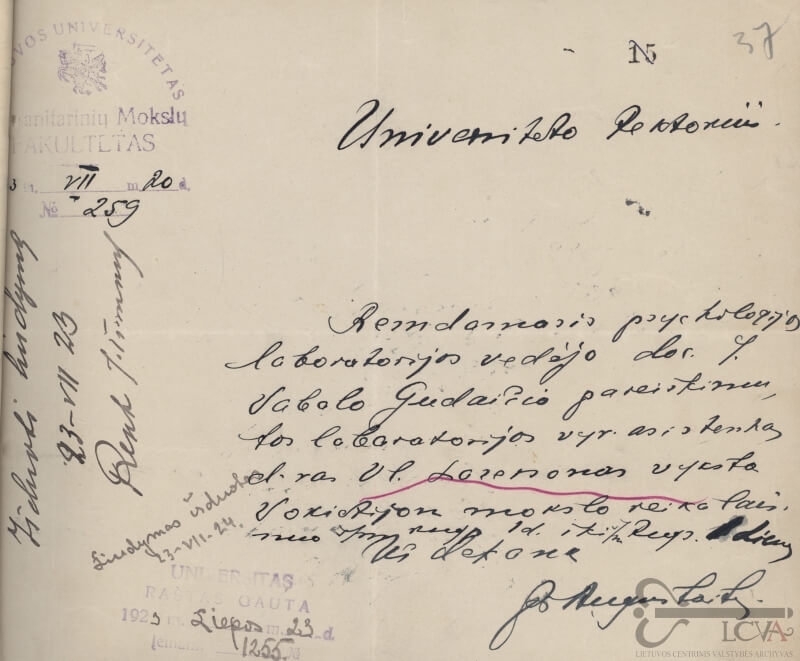 15
37
VOS UNIVERSITETAS
anitarinių Mokslų
FAKULTETAS
3 m. VII m. 20 d.
№ 259
Universiteto Rektoriui.
Remdamasis psychologijos
laboratorijos vedėjo doc. J.
Vabalo Gudaičio pareiškimu,
tos laboratorijos vyr. asistentas
d-ras Vl. Lazersonas vyksta
Vokietijon mokslo reikalais
nuo rugp. 1 d. iki Rugs. 1 dienos
Už dekaną
Augustaitis.
Išduoti liudymą
23-VII 23
Rekt
Liudymas išduotas
23-VII-24.
UNIVERSITAS
RAŠTAS GAUTA
1923 m. Liepos m. 23 d.
1255 №
LCVA
LIETUVOS CENTRINIS VALSTYBĖS ARCHYVAS